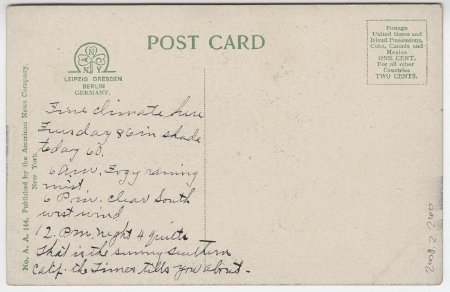 POST CARD
Postage
United States and
Island Possessions,
Cuba, Canada and
Mexico
ONE CENT.
For all other
Countries
TWO CENTS.
N
N Y
LEIPZIG DRESDEN
BERLIN
GERMANY.
No. A. A. 144. Published by the American News Company,
New York.
Fine climate here
Tuesday 86 in shade
today 60.
6 am. Fogy raining
mist
6 P.m. clear South
west wind
12. P.m. night 4 quilts
That is the sunny southern
Calif. the Times tells you about.
2008.2.260